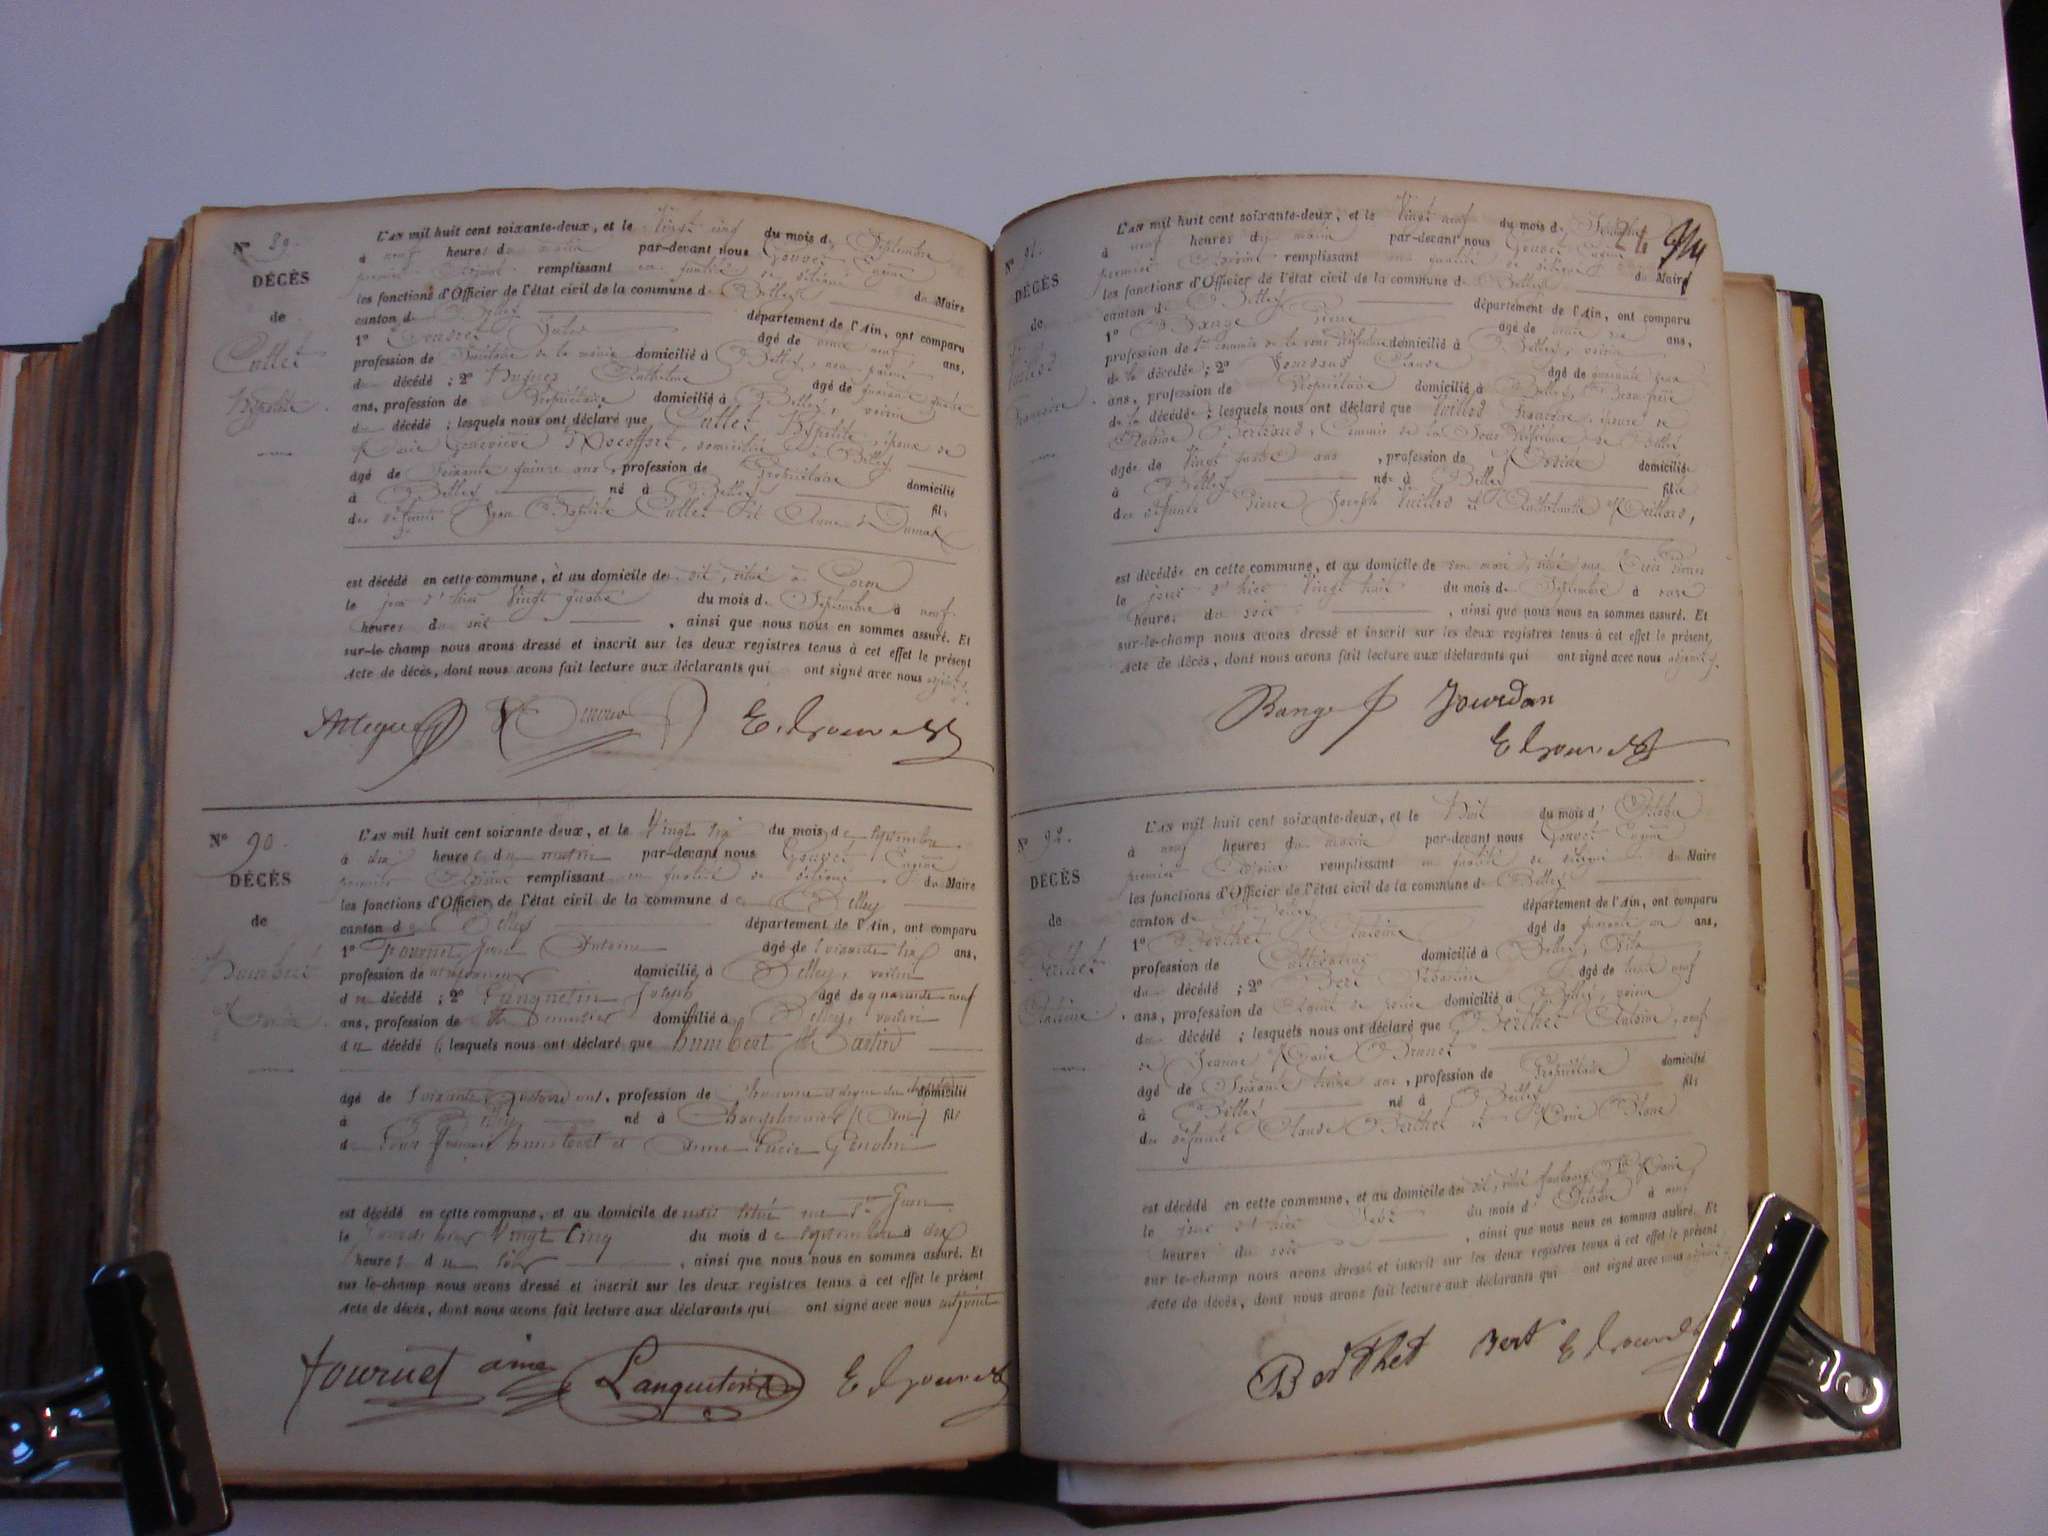 Nº 89.
DÉCÈS
de
Cullet
Hypolite.
L'AN mil huit cent soixante-deux, et le Vingt cinq du mois de Septembre
à neuf heures du matin par-devant nous Gouvet Eugène
premier Adjoint remplissant en qualité de délégué
les fonctions d'Officier de l'état civil de la commune de Belley du Maire
canton de Belley département de l'Ain, ont comparu
1º Jules âgé de ans,
profession de Secrétaire de la mairie domicilié à Belley, non parent
du décédé ; 2º Hugues Anthelme âgé de quarante quatre
ans, profession de Propriétaire domicilié à Belley, voisin
du décédé ; lesquels nous ont déclaré que Cullet Hypolite, époux de
Marie Geneviève domicilié à Belley
âgé de Soixante quinze ans, profession de Propriétaire domicilié
à Belley né à Belley fils
des défunts Jean Baptiste Cullet et Anne Dumas
est décédé en cette commune, et au domicile de dit, situé à
le jour d'hier Vingt quatre du mois de Septembre à neuf
heures du soir , ainsi que nous nous en sommes assuré. Et
sur-le-champ nous avons dressé et inscrit sur les deux registres tenus à cet effet le présent
Acte de décès, dont nous avons fait lecture aux déclarants qui ont signé avec nous adjoint.
E. Gouvet
Nº 90.
DÉCÈS
de
Humbert
L'AN mil huit cent soixante-deux, et le Vingt six du mois de septembre
à dix heures du matin par-devant nous Gouvet Eugène
premier Adjoint remplissant en qualité de délégué du Maire
les fonctions d'Officier de l'état civil de la commune de Belley
canton de Belley département de l'Ain, ont comparu
1º Fournet Antoine âgé de soixante six ans,
profession de domicilié à Belley, voisin
du décédé ; 2º Lanquetin Joseph âgé de quarante neuf
ans, profession de domicilié à Belley, voisin
du décédé ; lesquels nous ont déclaré que humbert
âgé de Soixante ans, profession de domicilié
à Belley né à (Ain) fils
de François humbert et anne Lucie
est décédé en cette commune, et au domicile de situé rue
le jour d'hier Vingt Cinq du mois de septembre à dix
heures du soir , ainsi que nous nous en sommes assuré. Et
sur-le-champ nous avons dressé et inscrit sur les deux registres tenus à cet effet le présent
Acte de décès, dont nous avons fait lecture aux déclarants qui ont signé avec nous adjoint
fournet aîné Lanquetin E Gouvet
24
Nº 91.
DÉCÈS
de
L'AN mil huit cent soixante-deux, et le Vingt neuf du mois de Septembre
à neuf heures du matin par-devant nous Gouvet Eugène
premier Adjoint remplissant en qualité de délégué du Maire
les fonctions d'Officier de l'état civil de la commune de Belley
canton de Belley département de l'Ain, ont comparu
1º Bange Pierre âgé de ans,
profession de commis de la sous Préfecture domicilié à Belley, voisin
de la décédée ; 2º Jourdan Claude âgé de quarante deux
ans, profession de Propriétaire domicilié à Belley, Beau-frère
de la décédée ; lesquels nous ont déclaré que épouse de
Antoine Bertrand, Commis de la Sous Préfecture de Belley
âgée de Vingt quatre ans , profession de domiciliée
à Belley née à Belley fille
des défunts Pierre Joseph et
est décédée en cette commune, et au domicile de son mari, situé
le jour d'hier Vingt huit du mois de Septembre à onze
heures du soir , ainsi que nous nous en sommes assuré. Et
sur-le-champ nous avons dressé et inscrit sur les deux registres tenus à cet effet le présent
Acte de décès, dont nous avons fait lecture aux déclarants qui ont signé avec nous adjoint.
Bange Jourdan
E Gouvet
Nº 92.
DÉCÈS
de
Berthet
Antoine.
L'AN mil huit cent soixante-deux, et le Huit du mois d'Octobre
à neuf heures du matin par-devant nous Gouvet Eugène
premier Adjoint remplissant en qualité de délégué du Maire
les fonctions d'Officier de l'état civil de la commune de Belley
canton de Belley département de l'Ain, ont comparu
1º Berthet Antoine âgé de quarante un ans,
profession de Cultivateur domicilié à Belley, Fils
du décédé ; 2º Bert Sébastien âgé de trente neuf
ans, profession de Agent de police domicilié à Belley, voisin
du décédé ; lesquels nous ont déclaré que Berthet Antoine, veuf
de Jeanne Marie Brunet
âgé de Soixante treize ans, profession de Propriétaire domicilié
à Belley né à Belley fils
des défunts Claude Berthet et Marie Blanc
est décédé en cette commune, et au domicile du dit, situé faubourg
le jour d'hier Sept du mois d'Octobre à neuf
heures du soir , ainsi que nous nous en sommes assuré. Et
sur-le-champ nous avons dressé et inscrit sur les deux registres tenus à cet effet le présent
Acte de décès, dont nous avons fait lecture aux déclarants qui ont signé avec nous adjoint
Berthet Bert E Gouvet